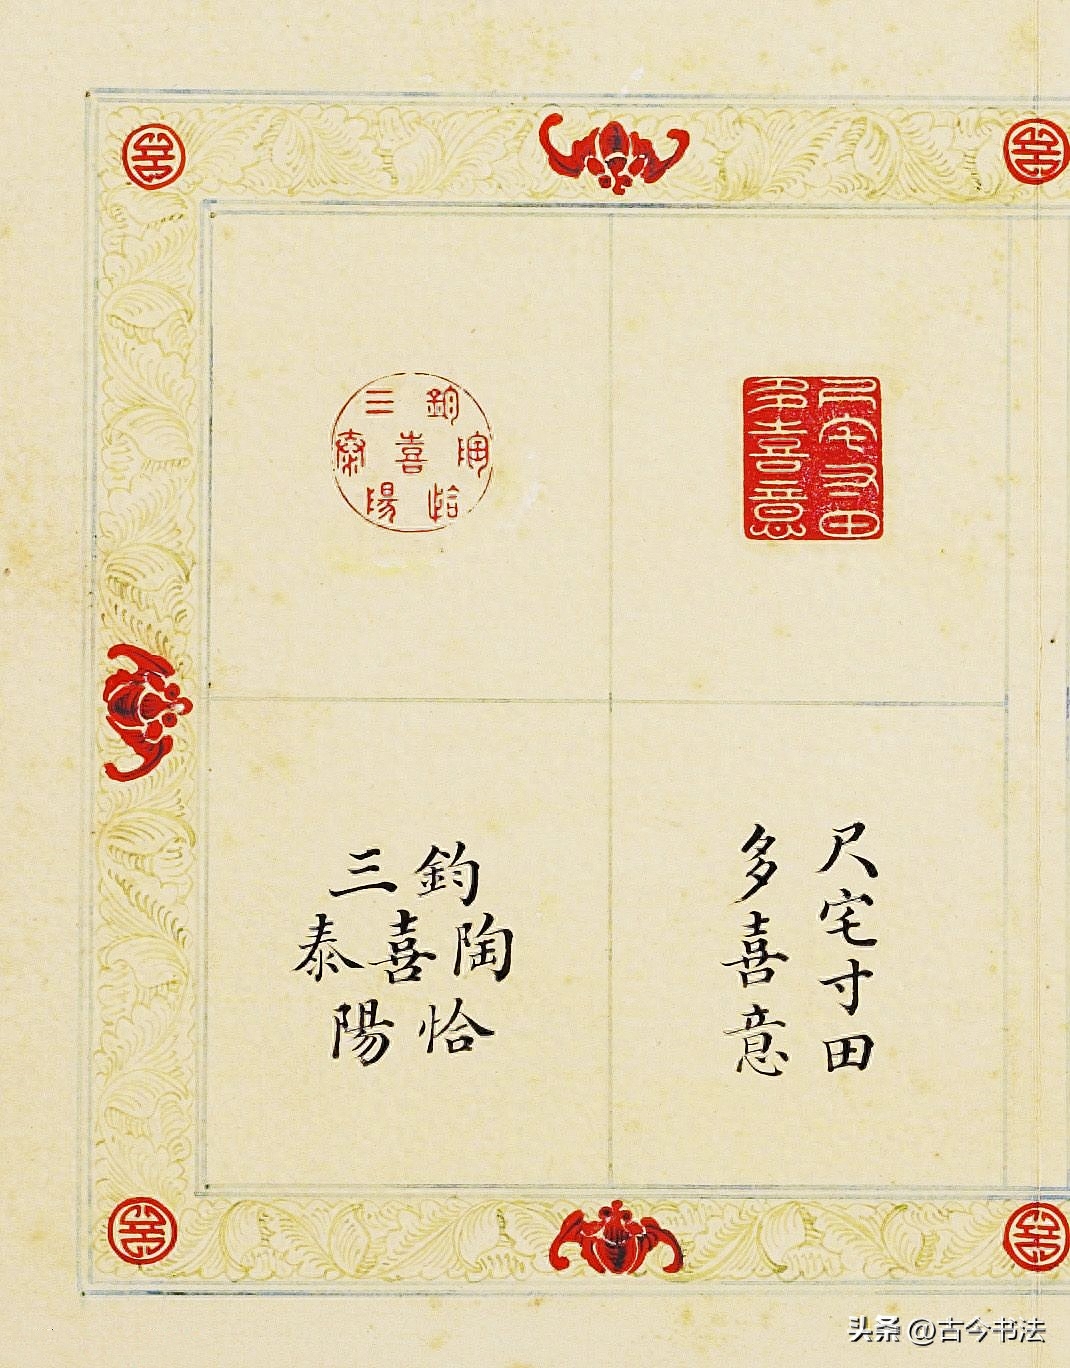 尺宅寸田
多喜意
鈞陶恰
喜
三泰陽
尺宅寸田
多喜意
鈞陶恰
喜
三泰陽
头条 @古今书法